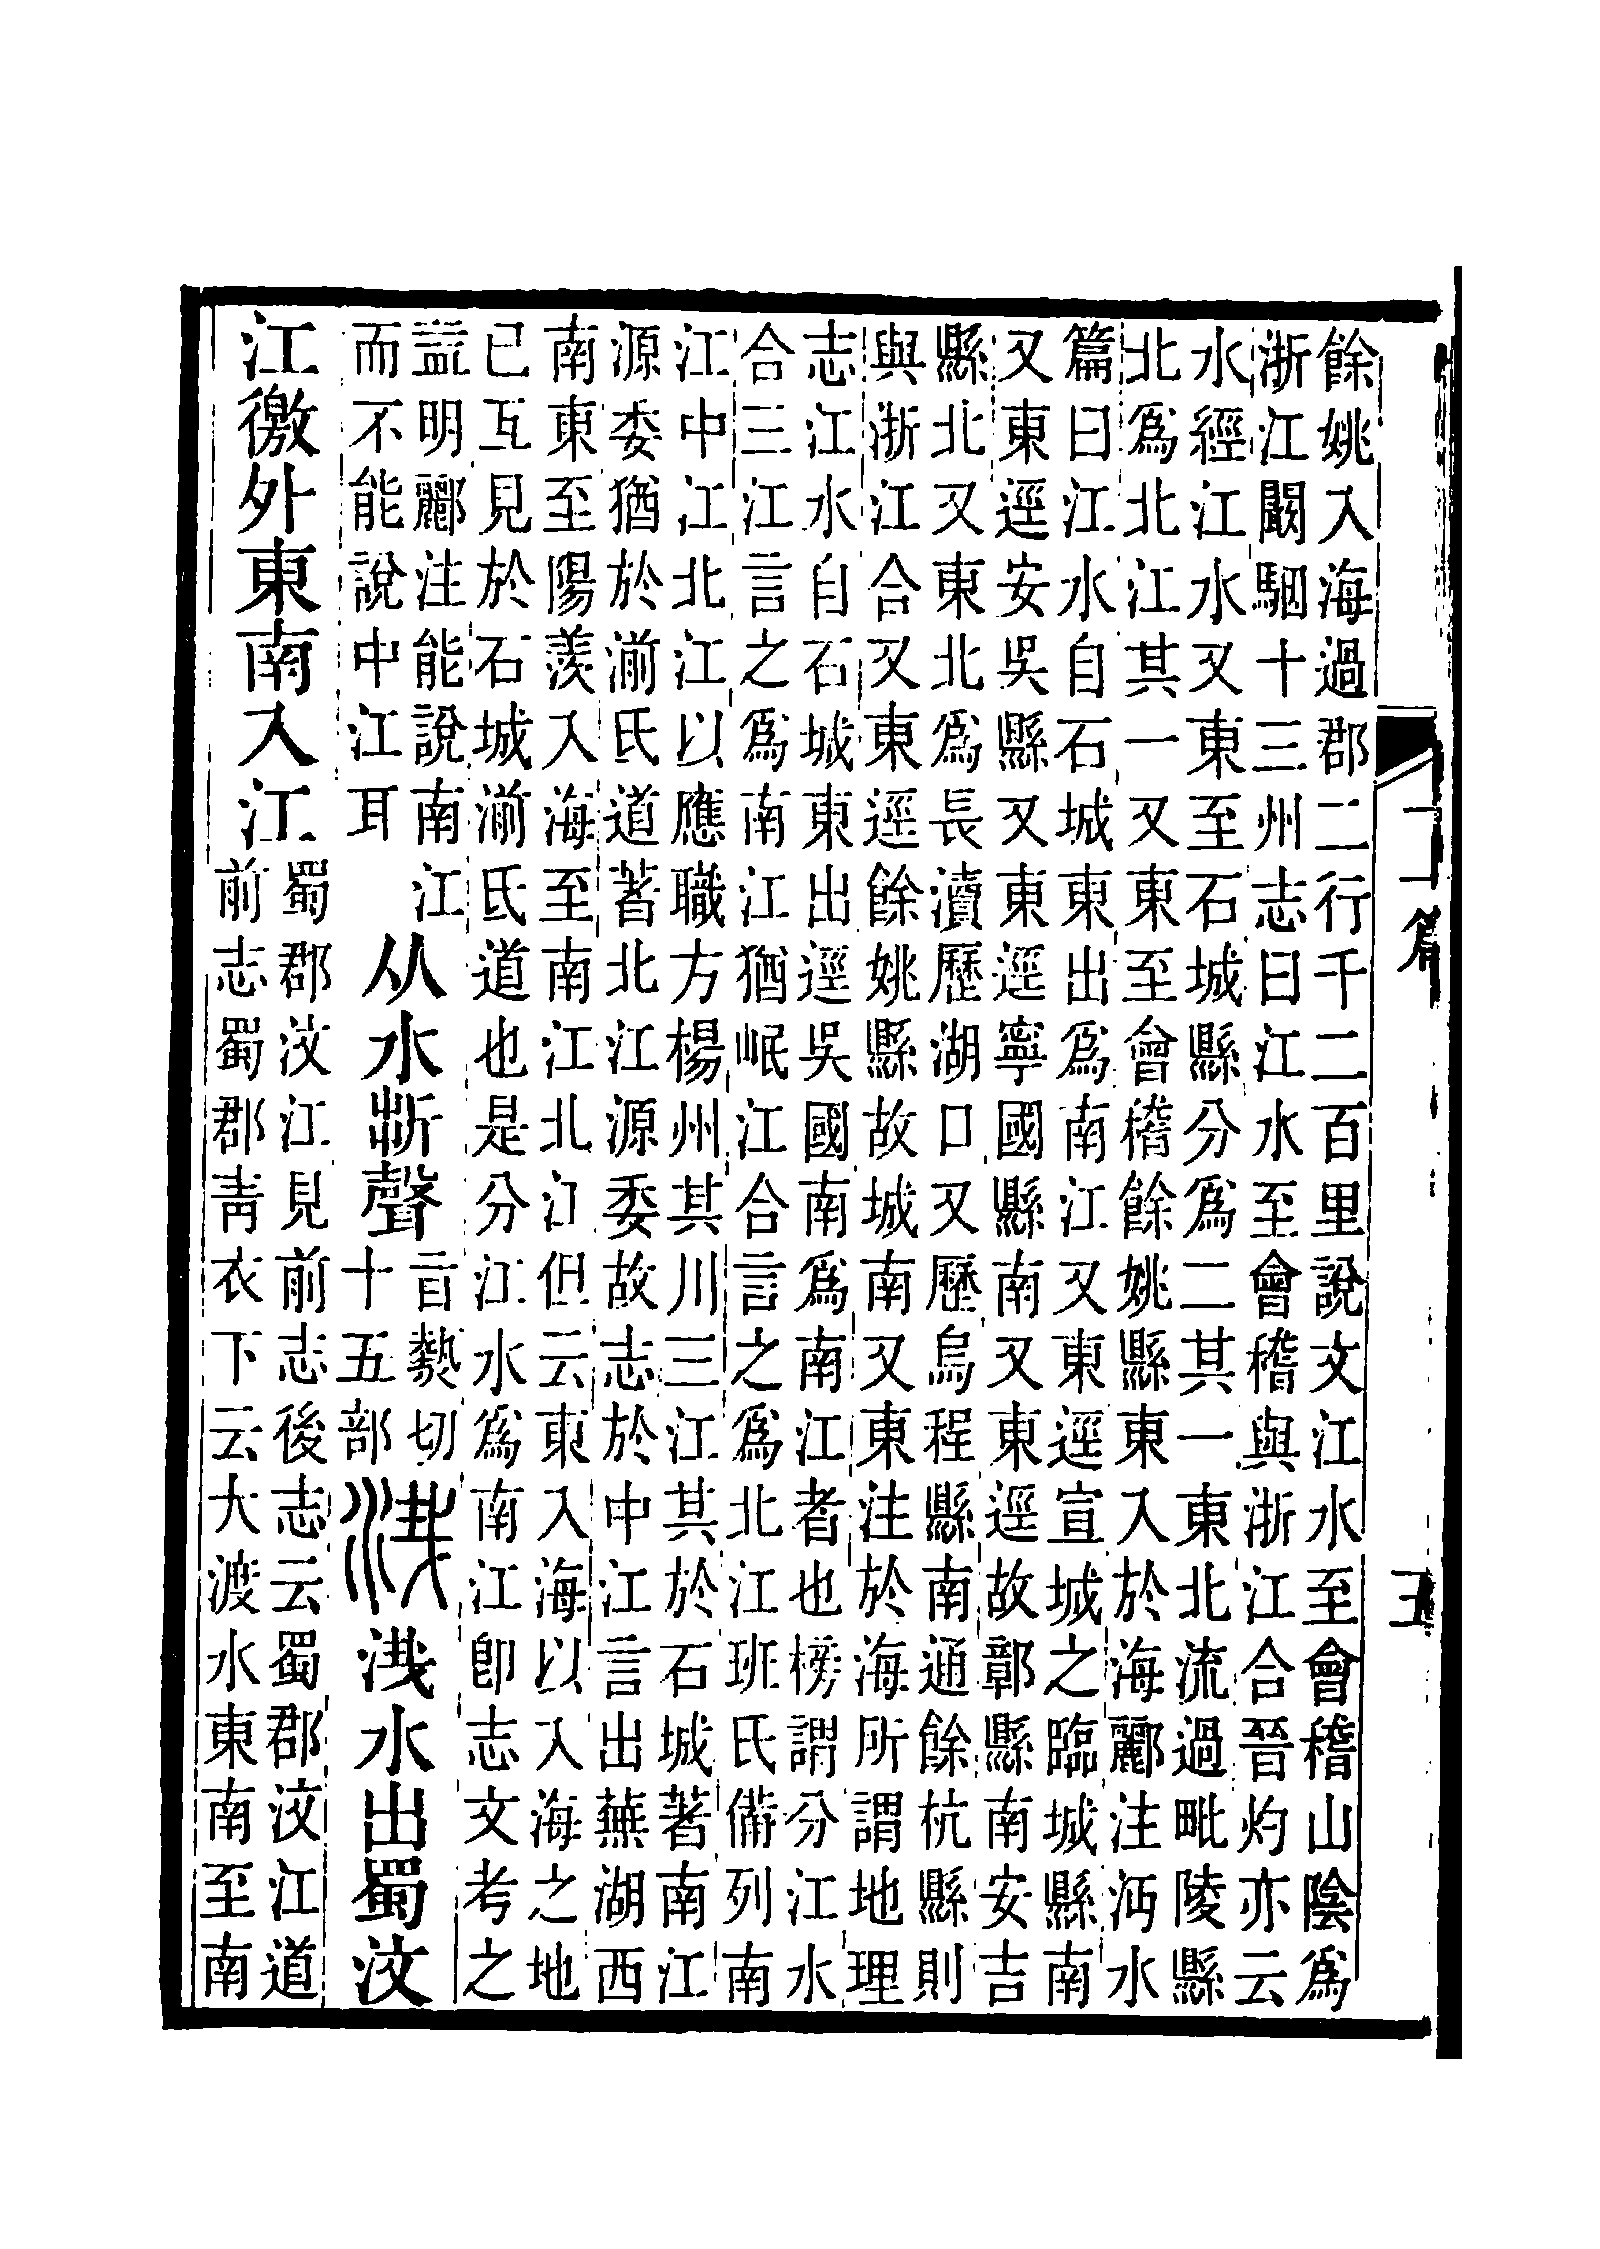 二篇
五
餘姚入海過郡二行千二百里說文江水至會稽山陰爲
浙江闞駰十三州志曰江水至會稽與浙江合晉灼亦云
水經江水又東至石城縣分爲二其一東北流過毗陵縣
北爲北江其一又東至會稽餘姚縣東入於海酈注沔水
篇曰江水自石城東出爲南江又東逕宣城之臨城縣南
又東逕安吳縣又東逕寧國縣南又東逕故鄣縣南安吉
縣北又東北爲長瀆歷湖口又歷烏程縣南通餘杭縣則
與浙江合又東逕餘姚縣故城南又東注於海所謂地理
志江水自石城東出逕吳國南爲南江者也榜謂分江水
合三江言之爲南江猶岷江合言之爲北江班氏備列南
江中江北江以應職方楊州其川三江其於石城著南江
源委猶於湔氏道著北江源委故志於中江言出蕪湖西
南東至陽羨入海至南江北江但云東入海以入海之地
已互見於石城湔氏道也是分江水爲南江卽志文考之
葢明酈注能說南江
而不能說中江耳
从水㪿聲
旨熱切
十五部
涐
涐水出蜀汶
江徼外東南入江
蜀郡汶江見前志後志云蜀郡汶江道
前志蜀郡靑衣下云大渡水東南至南